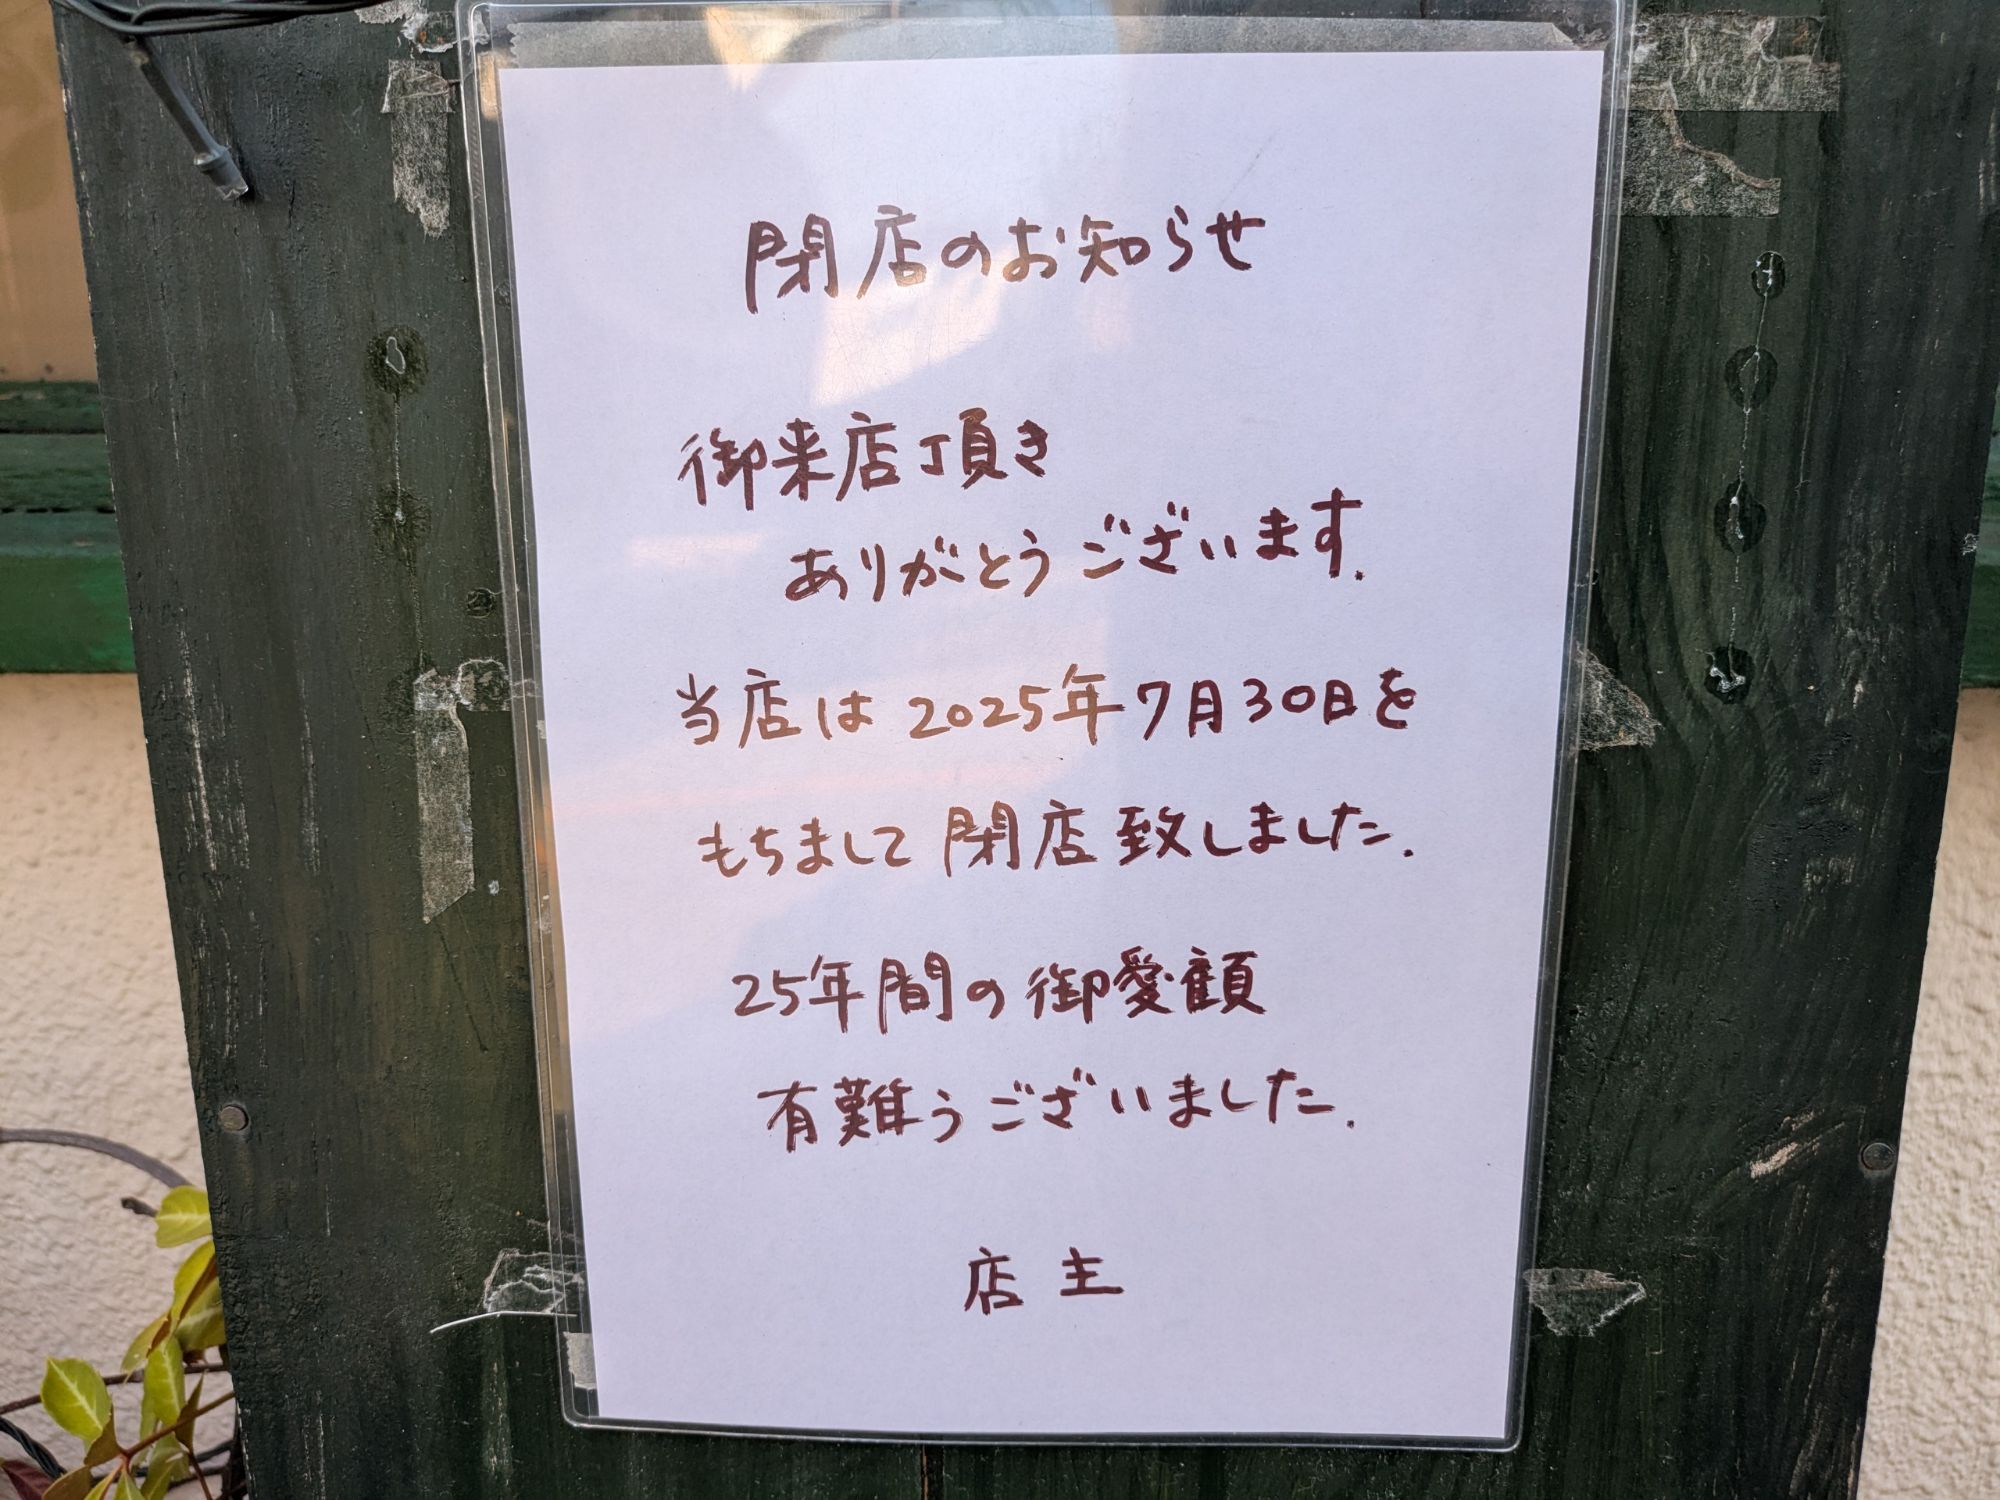 閉店のお知らせ
御来店頂き
ありがとうございます.
当店は2025年7月30日を
もちまして閉店致しました.
25年間の御愛顧
有難うございました.
店主